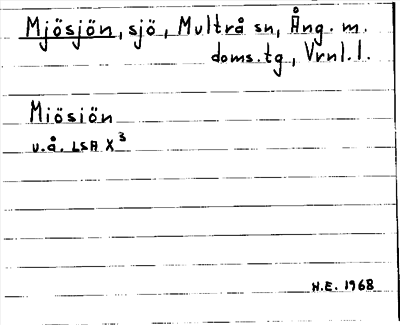 Mjösjön, sjö, Multrå sn, Ång. m.
doms.tg., Vrnl. l.
Miösiön
u.å. LSA X³
H.E. 1968